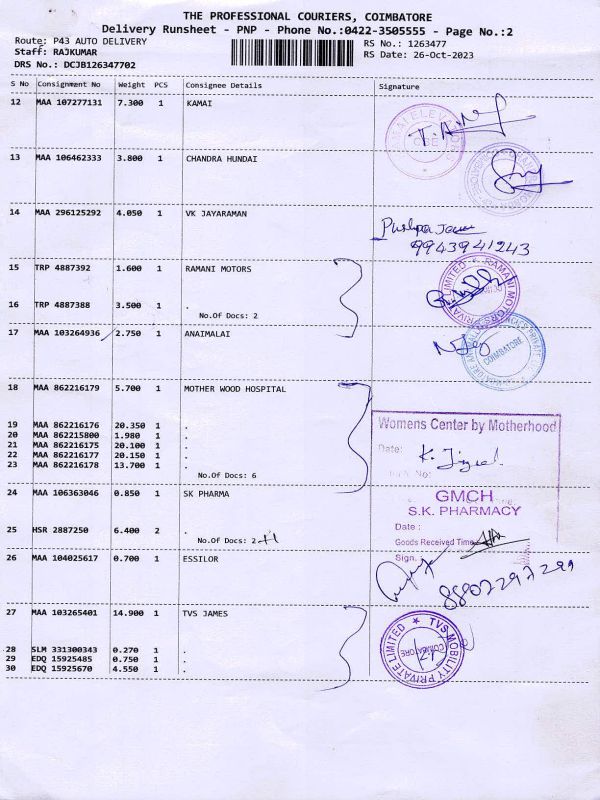 THE PROFESSIONAL COURIERS, COIMBATORE
Delivery Runsheet - PNP - Phone No.:0422-3505555 - Page No.:2
Route: P43 AUTO DELIVERY
RS No.: 1263477
Staff: RAJKUMAR
RS Date: 26-Oct-2023
DRS No.: DCJB126347702
S No Consignment No Weight PCS Consignee Details Signature
12 MAA 107277131 7.300 1 KAMAI
13 MAA 106462333 3.800 1 CHANDRA HUNDAI
14 MAA 296125292 4.050 1 VK JAYARAMAN
Pushpa
9943941243
15 TRP 4887392 1.600 1 RAMANI MOTORS
RAMANI MOTORS PRIVATE LIMITED
16 TRP 4887388 3.500 1 .
No.Of Docs: 2
17 MAA 103264936 2.750 1 ANAIMALAI
COIMBATORE
18 MAA 862216179 5.700 1 MOTHER WOOD HOSPITAL
19 MAA 862216176 20.350 1 .
20 MAA 862215800 1.980 1 .
21 MAA 862216175 20.100 1 .
22 MAA 862216177 20.150 1 .
23 MAA 862216178 13.700 1 .
No.Of Docs: 6
Womens Center by Motherhood
Date:
No:
24 MAA 106363046 0.850 1 SK PHARMA
GMCH
S.K. PHARMACY
25 HSR 2887250 6.400 2 .
No.Of Docs: 2+1
Date :
Goods Received Time
Sign.
26 MAA 104025617 0.700 1 ESSILOR
8807297299
27 MAA 103265401 14.900 1 TVS JAMES
TVS MOBILITY PRIVATE LIMITED
COIMBATORE
28 SLM 331300343 0.270 1 .
29 EDQ 15925485 0.750 1 .
30 EDQ 15925670 4.550 1 .